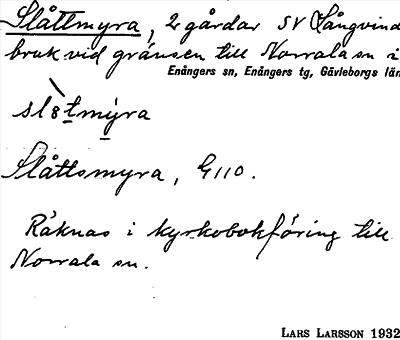 Slåttmyra, 2 gårdar SV Långvind
bruk vid gränsen till Norrala sn i
Enångers sn, Enångers tg, Gävleborgs län
Slåttsmyra, G110.
Räknas i kyrkobokföring till
Norrala sn.
LARS LARSSON 1932